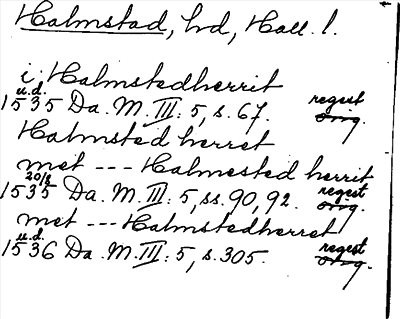 Halmstad, hd, Hall. l.
i Halmstedherrit
u.d. regest
1535 Da. M. III: 5, s. 67. orig.
Halmsted herret
met --- Halmested herrit
20/8 regest
1535 Da. M. III: 5, ss. 90, 92. orig.
met --- Halmstedherret
u.d. regest
1536 Da. M. III: 5, s. 305. orig.